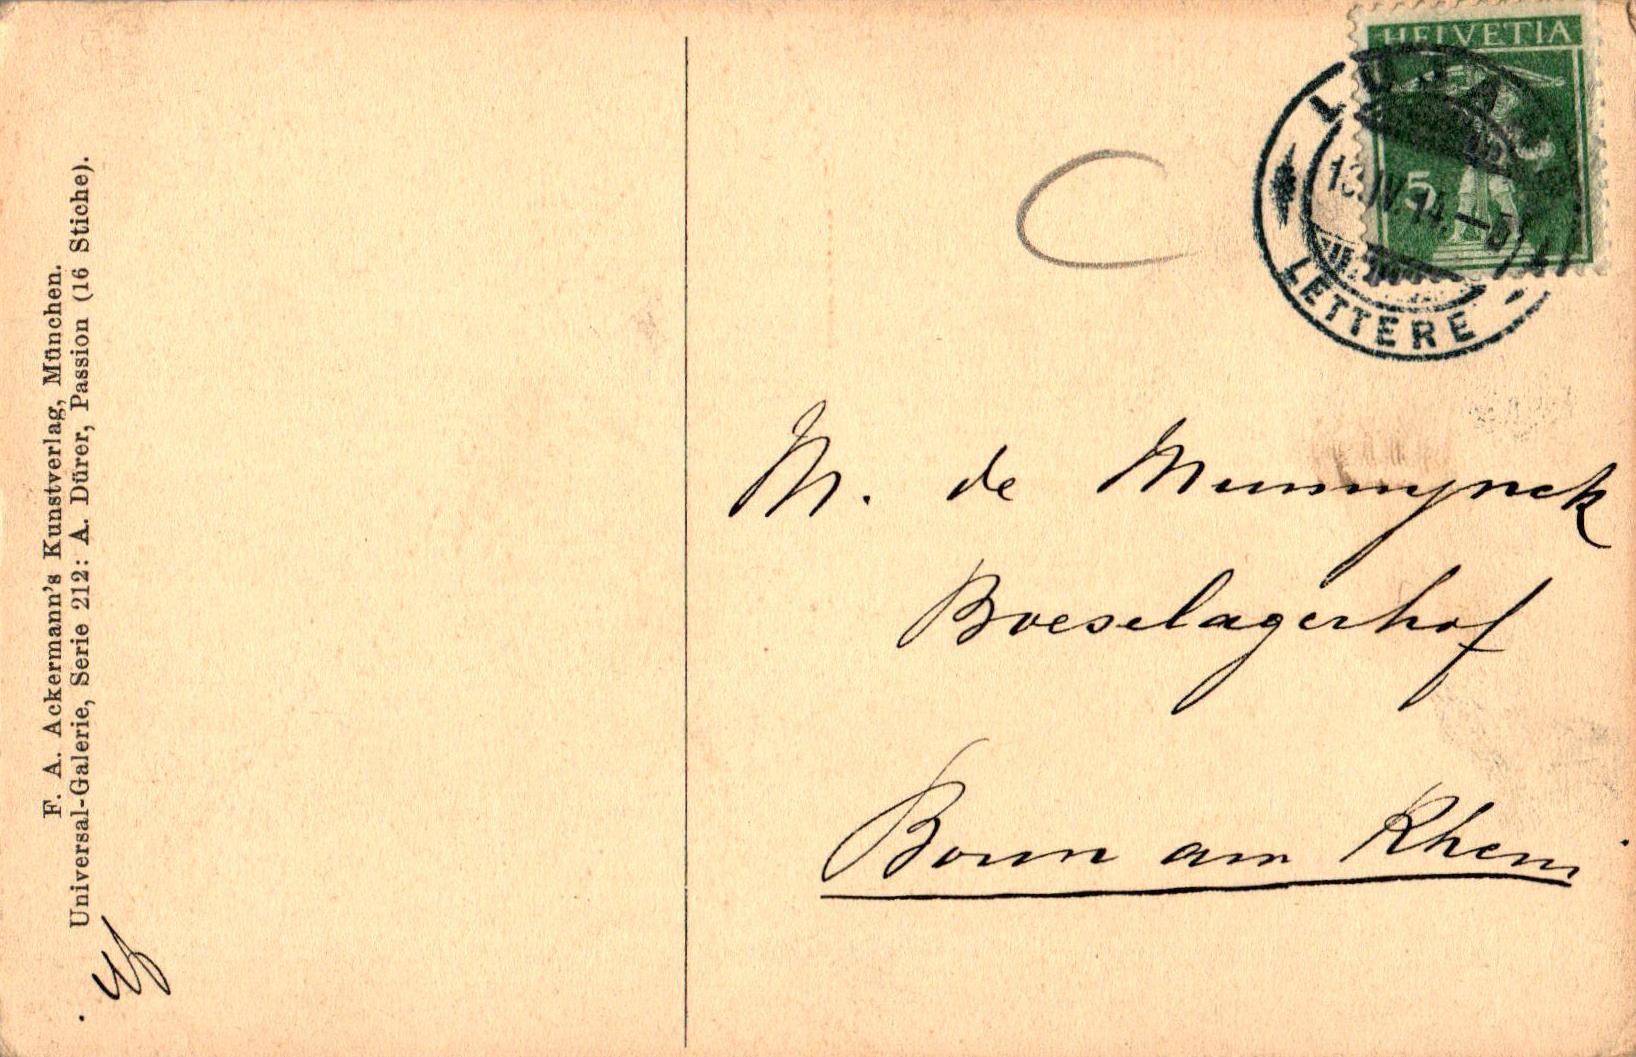 F. A. Ackermann's Kunstverlag, München.
Universal-Galerie, Serie 212: A. Dürer, Passion (16 Stiche).
HELVETIA
5
13.IV.14.
LETTERE
M. de Munnynck
Boeselagerhof
Bonn am Rhein